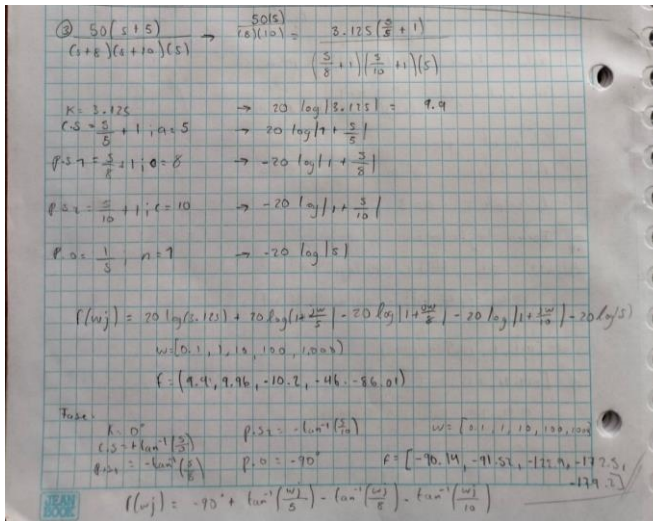 ③ 50(s+5) / (s+8)(s+10)(s) → 50(5) / (8)(10) = 3.125(s/5 + 1) / (s/8 + 1)(s/10 + 1)(s)
K = 3.125 → 20 log|3.125| = 9.9
C.S = s/5 + 1 ; a = 5 → 20 log|1 + s/5|
P.S1 = s/8 + 1 ; = 8 → -20 log|1 + s/8|
P.S2 = s/10 + 1 ; c = 10 → -20 log|1 + s/10|
P.O = 1/s ; n = 1 → -20 log|s|
f(wj) = 20 log(3.125) + 20 log|1 + jw/5| - 20 log|1 + jw/8| - 20 log|1 + jw/10| - 20 log|s)
w = [0.1, 1, 10, 100, 1,000)
f = ( 9.96, -10.2, -46. -86.01)
Fase.
K = 0° P.S2 = -tan⁻¹(s/10) w = [0.1, 1, 10, 100,
C.S = +tan⁻¹(s/5)
P.S1 = -tan⁻¹(s/8) P.O = -90° f = [-90.19, -91.52, -172.5,
-179.2]
f(wj) = -90° + tan⁻¹(wj/5) - tan⁻¹(wj/8) - tan⁻¹(wj/10)
JEAN
BOOK